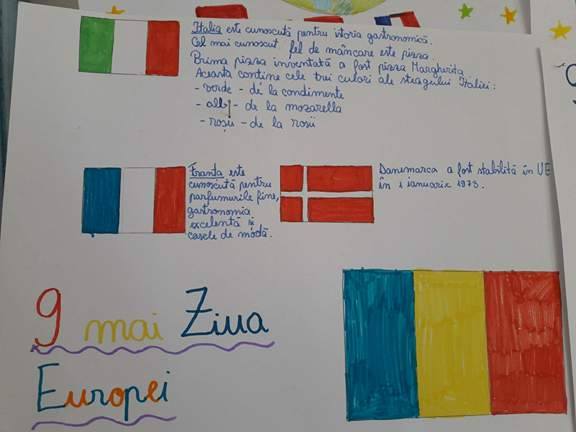 Italia este cunoscută pentru istoria gastronomică.
Cel mai cunoscut fel de mâncare este pizza.
Prima pizza inventată a fost pizza Margherita.
Aceasta contine cele trei culori ale steagului Italiei:
- verde - de la condimente
- alb - de la mozarella
- roșu - de la rosii
Franța este
cunoscută pentru
parfumurile fine,
gastronomia
excelentă si
casele de modă.
Danemarca a fost stabilită în UE
în 1 ianuarie 1973.
9 mai Ziua
Europei